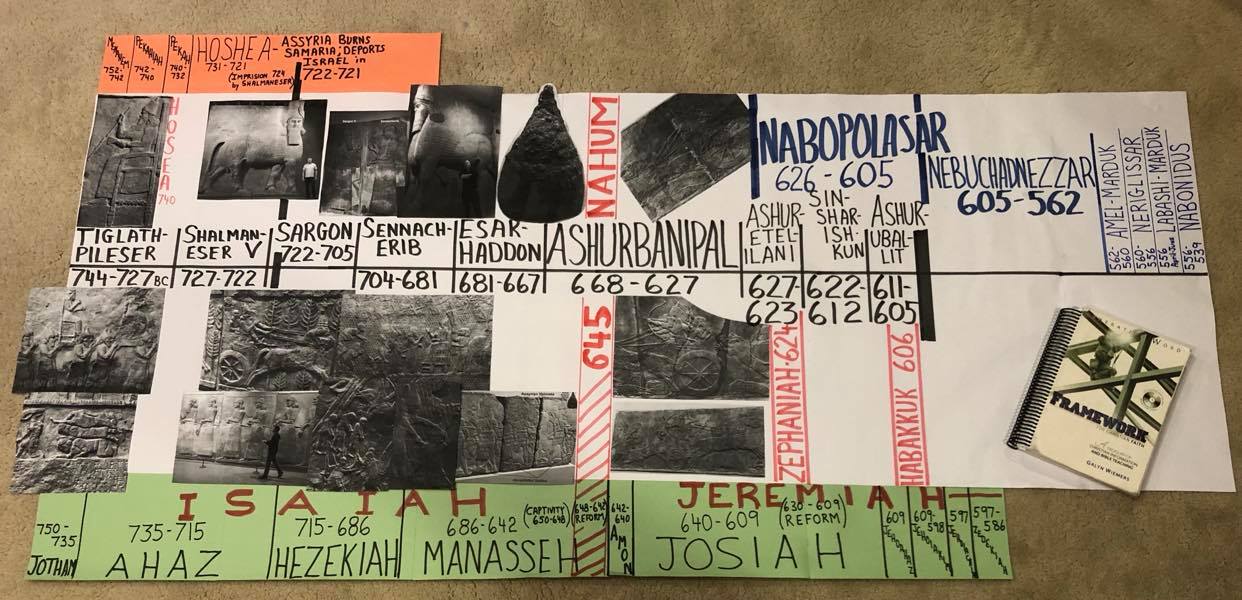 MENAHEM
752-
742
PEKAHIAH
742-
740
PEKAH
740-
732
HOSHEA-
731-721
ASSYRIA BURNS
SAMARIA; DEPORTS
ISRAEL in
722-721
(IMPRISION 724
by SHALMANESER)
HOSEA 740
NAHUM
NABOPOLASAR
626-605
NEBUCHADNEZZAR
605-562
562-
560 AMEL-MARDUK
560-
556 NERIGLISSAR
556 LABASHI-MARDUK
556-
539 NABONIDUS
TIGLATH-
PILESER
744-727BC
SHALMAN-
ESER V
727-722
SARGON
722-705
SENNACH-
ERIB
704-681
ESAR-
HADDON
681-667
ASHURBANIPAL
668-627
ASHUR-
ETEL-
ILANI
627-
623
SIN-
SHAR-
ISH-
KUN
622-
612
ASHUR-
UBAL-
LIT
611-
605
645
ZEPHANIAH-624
HABAKKUK 606
WORD
FRAMEWORK
AND BIBLE TEACHING
GALYN WIEMERS
ISAIAH
JEREMIAH
750-
735
JOTHAM
735-715
AHAZ
715-686
HEZEKIAH
686-642
(CAPTIVITY)
650-648
MANASSEH
648-642
REFORM
642-
640
AMON
640-609
(630-609)
(REFORM)
JOSIAH
609
JEHOAHAZ
609-
598
JEHOIAKIM
597
597-
586
ZEDEKIAH